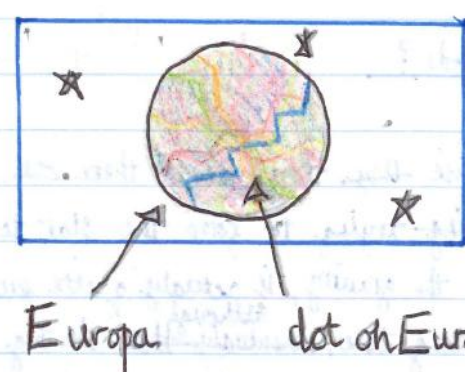 Europa dot on Eur